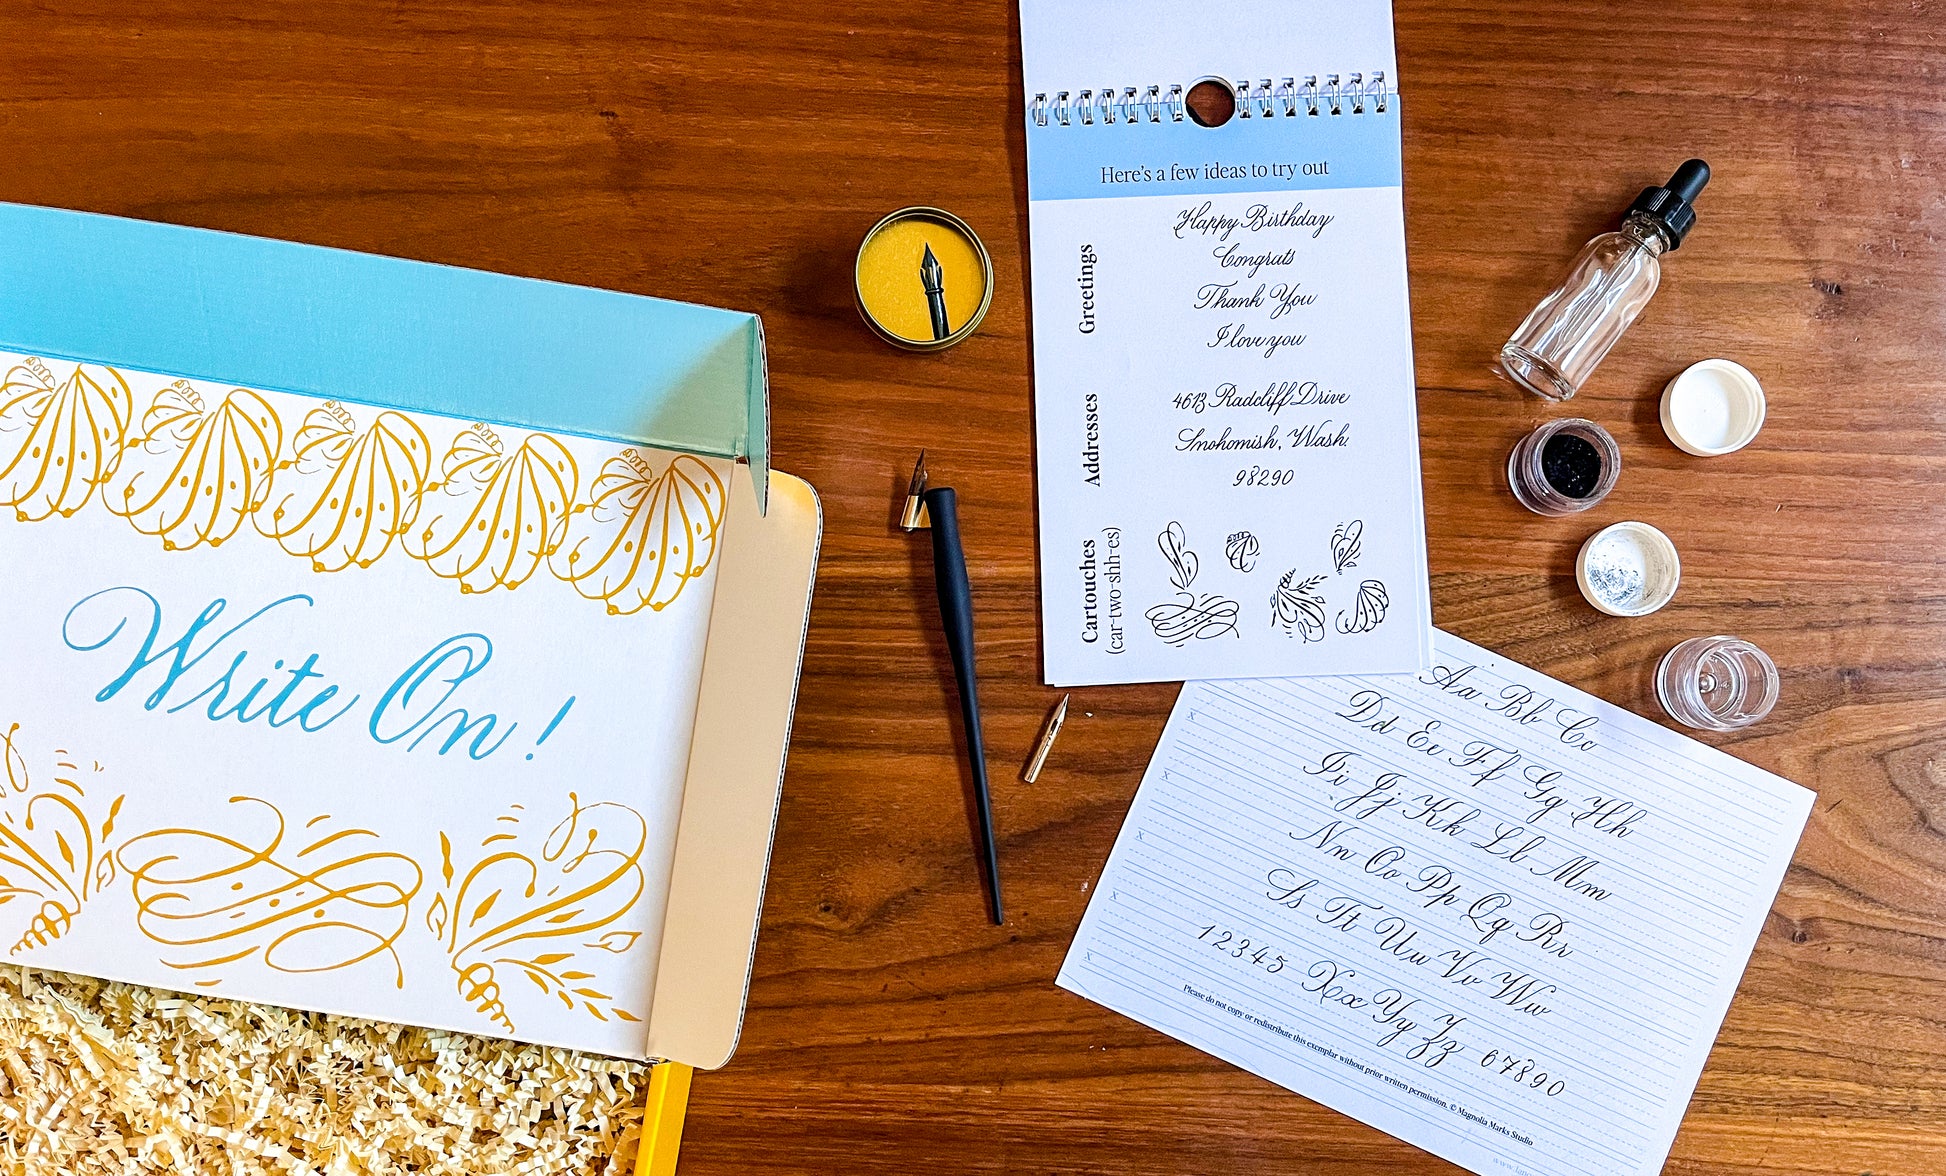 Write On!
Here's a few ideas to try out
Greetings
Happy Birthday
Congrats
Thank You
I love you
Addresses
4613 Radcliff Drive
Snohomish, Wash.
98290
Cartouches
(car-two-shh-es)
Aa Bb Cc
Dd Ee Ff Gg Hh
Ii Jj Kk Ll Mm
Nn Oo Pp Qq Rr
Ss Tt Uu Vv Ww
12345 Xx Yy Zz 67890
x
x
x
x
x
Please do not copy or redistribute this exemplar without prior written permission. © Magnolia Marks Studio